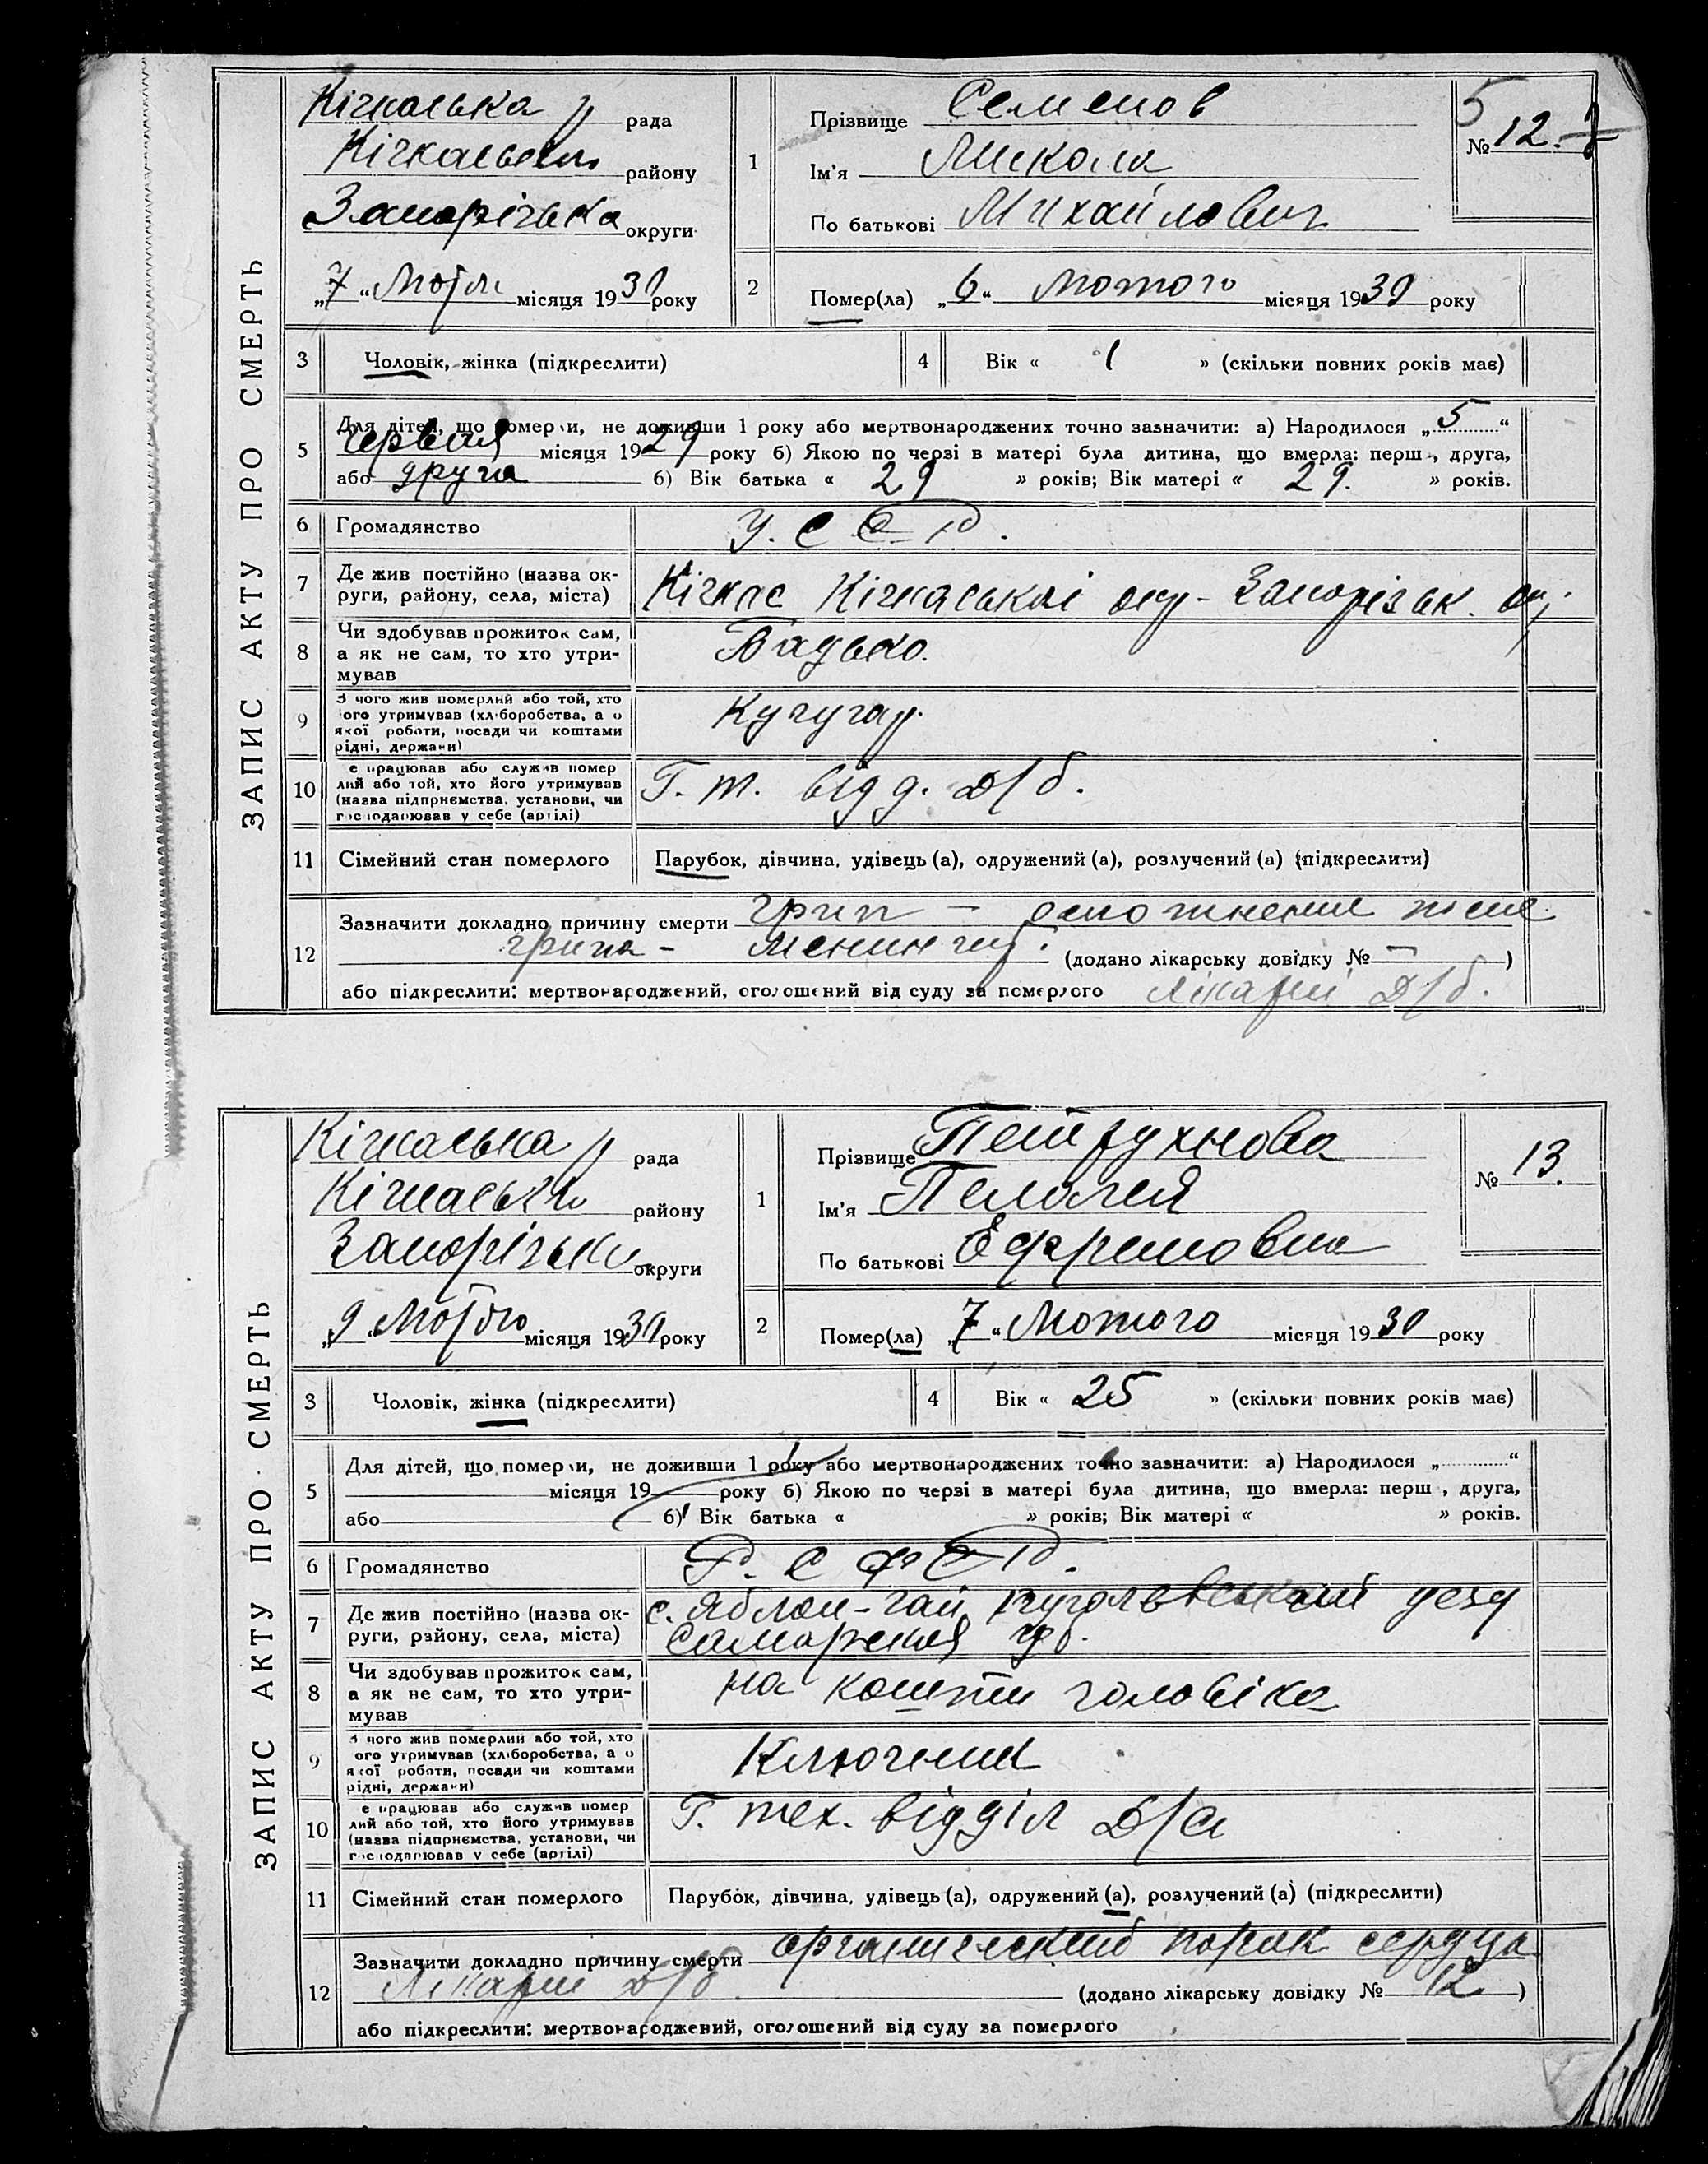 ЗАПИС АКТУ ПРО СМЕРТЬ
Кічкаська р рада
Кічкаського району
Запорізька округи
„7“ Лют. місяця 1930 року
1
Прізвище Семенов
Ім'я Микола
По батькові Михайлович
№ 12.
5
2
Помер(ла) „6“ лютого місяця 1930 року
3 Чоловік, жінка (підкреслити)
4 Вік « 1 » (скільки повних років має)
5 Для дітей, що померли, не доживши 1 року або мертвонароджених точно зазначити: а) Народилося „5“
червня місяця 1929 року б) Якою по черзі в матері була дитина, що вмерла: перш , друга,
або друга б) Вік батька « 29 » років; Вік матері « 29. » років.
6 Громадянство У.С.С.Р.
7 Де жив постійно (назва ок-
руги, району, села, міста) Кічкас Кічкаської Запорізьк.
8 Чи здобував прожиток сам,
а як не сам, то хто утри-
мував Батько.
9 З чого жив померлий або той, хто
ого утримував (хліборобства, а о
якої роботи, посади чи коштами
рідні, держави) Кучугар.
10 е працював або служив помер
лий або той, хто його утримував
(назва підприємства, установи, чи
господарював у себе (артілі) Г. т. відд. Д/б.
11 Сімейний стан померлого Парубок, дівчина, удівець (а), одружений (а), розлучений (а) (підкреслити)
12 Зазначити докладно причину смерти грип — осложнение после
грипа – менингит. (додано лікарську довідку № — )
або підкреслити: мертвонароджений, оголошений від суду за померлого Лікарні Д/б.
ЗАПИС АКТУ ПРО СМЕРТЬ
Кічкаська р рада
Кічкаського району
Запорізька округи
„9“ Лютого місяця 1930 року
1
Прізвище Петрухнова
Ім'я Пелагея
По батькові Ефремовна
№ 13.
2
Помер(ла) „7“ Лютого місяця 1930 року
3 Чоловік, жінка (підкреслити)
4 Вік « 25 » (скільки повних років має)
5 Для дітей, що померли, не доживши 1 року або мертвонароджених точно зазначити: а) Народилося „ “
місяця 19 року б) Якою по черзі в матері була дитина, що вмерла: перш , друга,
або б) Вік батька « » років; Вік матері « » років.
6 Громадянство Р.С.Ф.С.Р.
7 Де жив постійно (назва ок-
руги, району, села, міста) с. Яблон-гай уезд
Самарская губ.
8 Чи здобував прожиток сам,
а як не сам, то хто утри-
мував на кошти чоловіка
9 З чого жив померлий або той, хто
ого утримував (хліборобства, а о
якої роботи, посади чи коштами
рідні, держави) Ключник
10 е працював або служив помер
лий або той, хто його утримував
(назва підприємства, установи, чи
господарював у себе (артілі) Г. тех. відділ
11 Сімейний стан померлого Парубок, дівчина, удівець (а), одружений (а), розлучений (а) (підкреслити)
12 Зазначити докладно причину смерти органический порок сердца
Лікарні Д/б. (додано лікарську довідку № 12 )
або підкреслити: мертвонароджений, оголошений від суду за померлого